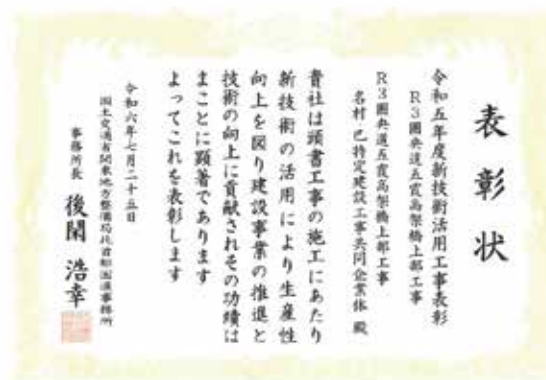 表彰状
令和五年度新技術活用工事表彰
R3圏央道五霞高架橋上部工事
R3圏央道五霞高架橋上部工事
名村・巴特定建設工事共同企業体 殿
貴社は頭書工事の施工にあたり
新技術の活用により生産性
向上を図り建設事業の推進と
技術の向上に貢献されその功績は
まことに顕著であります
よってこれを表彰します
令和六年七月二十五日
国土交通省関東地方整備局北首都国道事務所
事務所長 後閑 浩幸